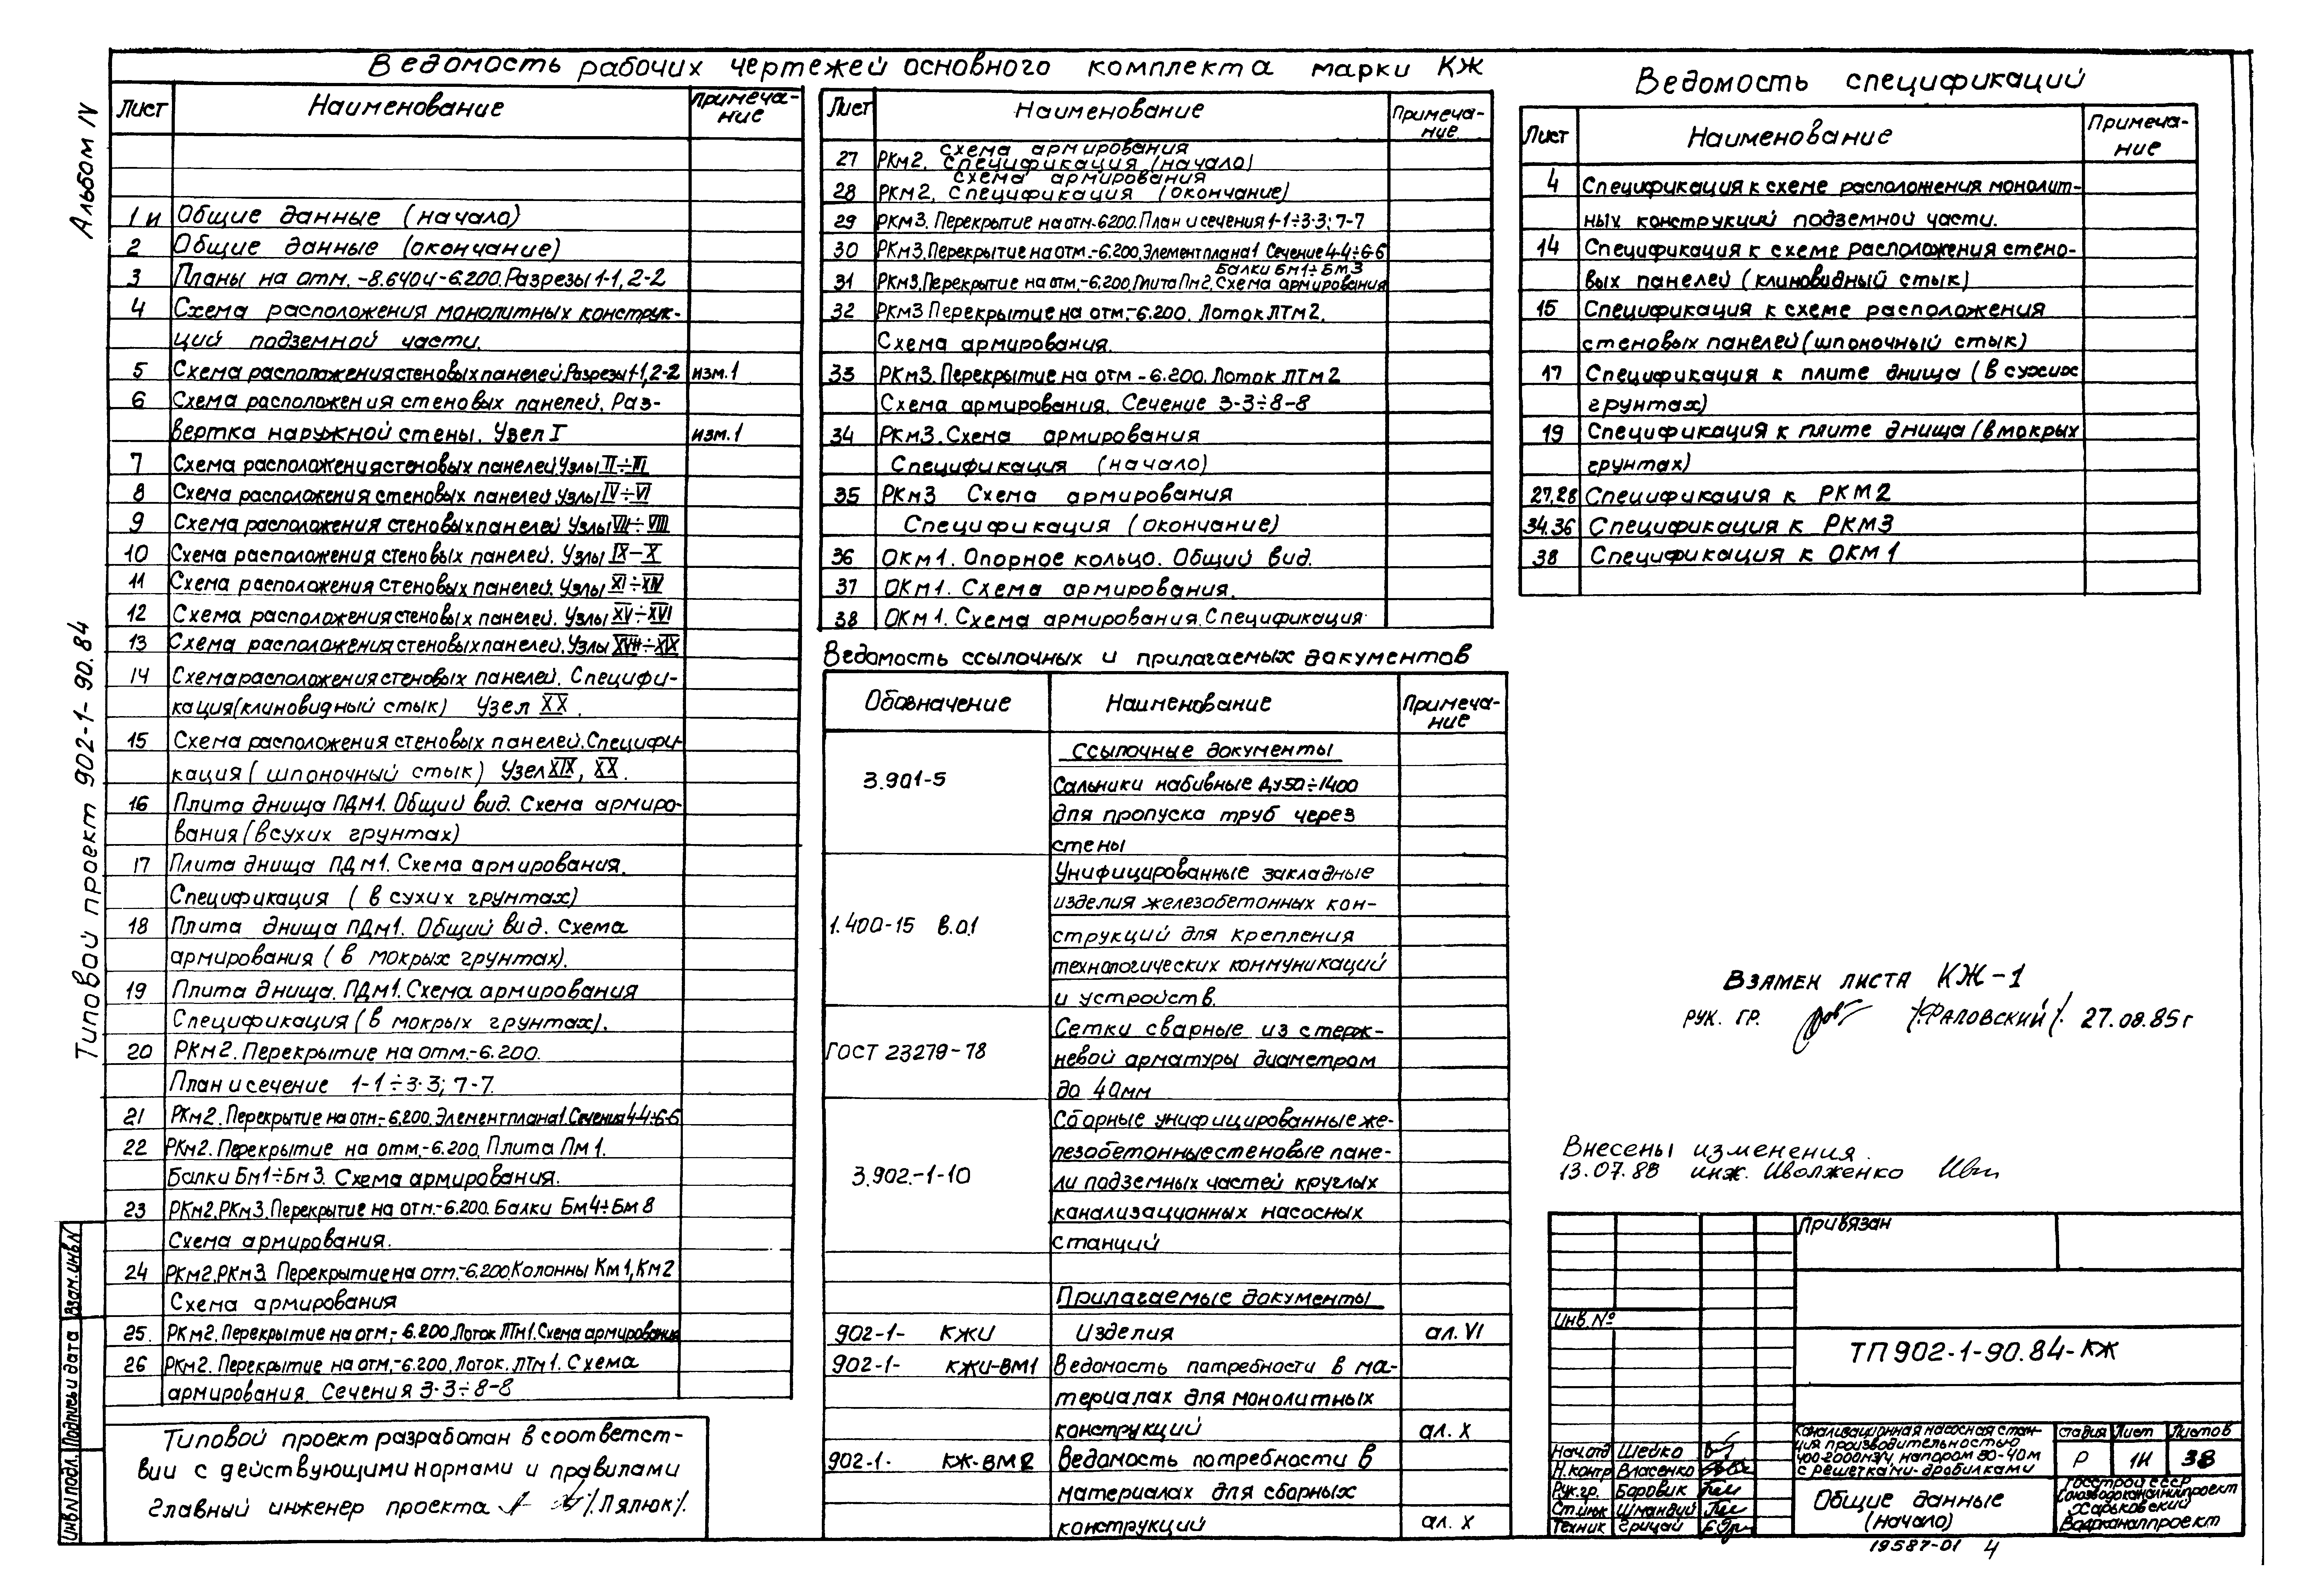 Альбом IV
Типовой проект 902-1-90.84
Ведомость рабочих чертежей основного комплекта марки КЖ
Лист Наименование Примеча-
ние
1и Общие данные (начало)
2 Общие данные (окончание)
3 Планы на отм. -8.640и-6.200. Разрезы 1-1, 2-2
4 Схема расположения монолитных конструк-
ций подземной части.
5 Схема расположения стеновых панелей Разрезы 1-1, 2-2 изм.1
6 Схема расположения стеновых панелей. Раз-
вертка наружной стены. Узел I изм.1
7 Схема расположения стеновых панелей. Узлы II÷III
8 Схема расположения стеновых панелей Узлы IV÷VI
9 Схема расположения стеновых панелей Узлы VII÷VIII
10 Схема расположения стеновых панелей. Узлы IX-X
11 Схема расположения стеновых панелей. Узлы XI÷XIV
12 Схема расположения стеновых панелей. Узлы XV÷XVI
13 Схема расположения стеновых панелей. Узлы XVII÷XIX
14 Схема расположения стеновых панелей. Специфи-
кация (клиновидный стык) Узел XX.
15 Схема расположения стеновых панелей. Специфи-
кация ( шпоночный стык) Узел XIX, XX.
16 Плита днища ПДм1. Общий вид. Схема армиро-
вания (в сухих грунтах)
17 Плита днища ПДм1. Схема армирования.
Спецификация ( в сухих грунтах)
18 Плита днища ПДм1. Общий вид. Схема
армирования ( в мокрых грунтах).
19 Плита днища. ПДм1. Схема армирования
Спецификация ( в мокрых грунтах).
20 РКм2. Перекрытие на отм.-6.200.
План и сечение 1-1÷3-3; 7-7.
21 РКм2. Перекрытие на отм.-6.200. Элемент плана 1. Сечения 4-4÷6-6
22 РКм2. Перекрытие на отм.-6.200. Плита Пм1.
Балки Бм1÷Бм3. Схема армирования.
23 РКм2, РКм3. Перекрытие на отм.-6.200. Балки Бм4÷Бм8
Схема армирования.
24 РКм2, РКм3. Перекрытие на отм.-6.200 Колонны Км1, Км2
Схема армирования
25. РКм2. Перекрытие на отм.-6.200. Лоток ЛТм1. Схема армирования
26 РКм2. Перекрытие на отм.-6.200. Лоток. ЛТм1. Схема
армирования. Сечения 3-3÷8-8
Типовой проект разработан в соответст-
вии с действующими нормами и правилами
главный инженер проекта /Лялюк/.
Лист Наименование Примеча-
ние
27 РКм2. схема армирования
Спецификация (начало)
28 РКм2. схема армирования
Спецификация (окончание)
29 РКм3. Перекрытие на отм-6.200. План и сечения 1-1÷3-3; 7-7
30 РКм3. Перекрытие на отм.-6.200. Элемент плана 1 Сечение 4-4÷6-6
31 РКм3. Перекрытие на отм.-6.200. Плита Пм2. Балки Бм1÷Бм3
Схема армирования
32 РКм3 Перекрытие на отм.-6.200. Лоток ЛТм2.
Схема армирования.
33 РКм3. Перекрытие на отм -6.200. Лоток ЛТм2
Схема армирования. Сечение 3-3÷8-8
34 РКм3. Схема армирования
Спецификация (начало)
35 РКм3 Схема армирования
Спецификация (окончание)
36 ОКм1. Опорное кольцо. Общий вид.
37 ОКм1. Схема армирования.
38 ОКм1. Схема армирования. Спецификация
Ведомость ссылочных и прилагаемых документов
Обозначение Наименование Примеча-
ние
Ссылочные документы
3.901-5 Сальники набивные Ду50÷1400
для пропуска труб через
стены
Унифицированные закладные
изделия железобетонных кон-
1.400-15 в.01 струкций для крепления
технологических коммуникаций
и устройств.
Сетки сварные из стерж-
ГОСТ 23279-78 невой арматуры диаметром
до 40мм
Сборные унифицированные же-
лезобетонные стеновые пане-
3.902-1-10 ли подземных частей круглых
канализационных насосных
станций
Прилагаемые документы
902-1- КЖИ Изделия ал. VI
902-1- КЖИ-ВМ1 Ведомость потребности в ма-
териалах для монолитных
конструкций ал. X
902-1- КЖ-ВМ2 Ведомость потребности в
материалах для сборных
конструкций ал. X
Ведомость спецификаций
Лист Наименование Примеча-
ние
4 Спецификация к схеме расположения монолит-
ных конструкций подземной части.
14 Спецификация к схеме расположения стено-
вых панелей (клиновидный стык)
15 Спецификация к схеме расположения
стеновых панелей (шпоночный стык)
17 Спецификация к плите днища ( в сухих
грунтах)
19 Спецификация к плите днища (в мокрых
грунтах)
27,28 Спецификация к РКМ2
34,36 Спецификация к РКМ3
38 Спецификация к ОКМ1
Взамен листа КЖ-1
рук. гр. /Фаловский/. 27.08.85г
Внесены изменения.
13.07.88 инж. Иволженко
Привязан
Инв.№
ТП 902-1-90.84-КЖ
Нач.отд Шейко
Н.контр Власенко
Рук.гр. Боровик
Ст.инж Шмандий
Техник Грицай
Канализационная насосная стан-
ция производительностью
400-2000м3/ч, напором 50-40м
с решетками-дробилками
Стадия Лист Листов
Р 1И 38
Общие данные
(начало)
Госстрой СССР
Союзводоканалниипроект
Харьковский
Водоканалпроект
19587-01 4
Инв.N подл. Подпись и дата Взам.инв.N